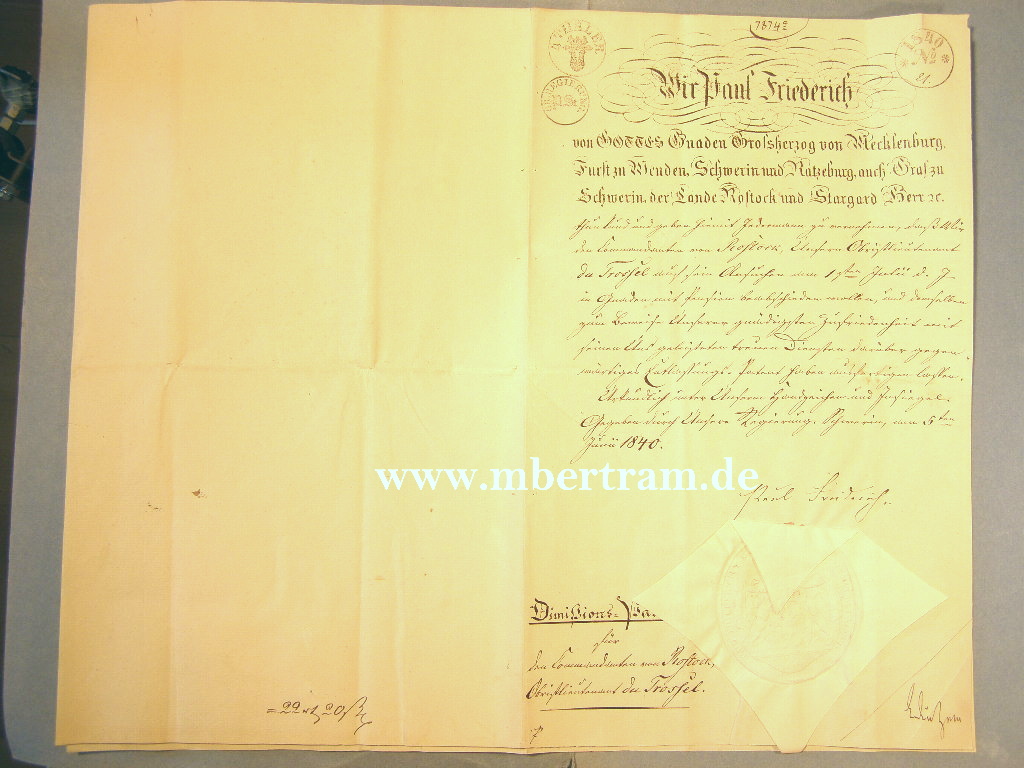 7874
No
21.
Wir Paul Friederich
von GOTTES Gnaden Grossherzog von Mecklenburg,
Furst zu Wenden, Schwerin und Ratzeburg, auch Graf zu
Schwerin, der Lande Rostock und Stargard Herr ꝛc.
thun kund und geben hiemit Jedermann zu vernehmen, daß Wir
den Commandanten von Rostock, Unsern Obristlieutenant
du Trossel auf sein Ansuchen am 1sten Julii d. J.
in Gnaden mit Pension verabschieden wollen, und demselben
zum Beweise Unserer gnädigsten Zufriedenheit mit
seinen Uns geleisteten treuen Diensten darüber gegen-
wärtiges Entlassungs-Patent haben ausfertigen lassen.
Urkundlich unter Unserm Handzeichen und Insiegel.
Gegeben durch Unsere Regierung. Schwerin, am 5ten
Junii 1840.
www.mbertram.de
Paul Friedrich.
Dimissions-Pa.
für
den Commandanten von Rostock,
Obristlieutenant du Trossel.